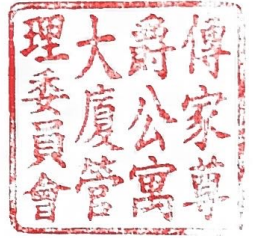 傳家尊
爵公寓
大廈管
理委員會